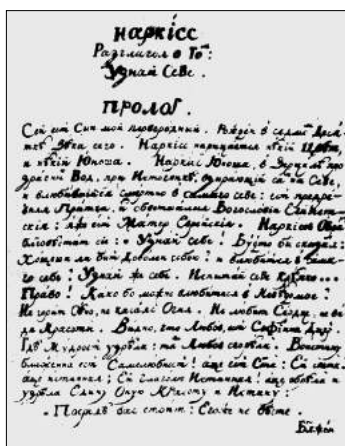 НАРКІСС
Разглагол о То:
Узнай Себе.
ПРОЛОГ.
Сей есть Сын мой первородный. Рожден в седмом Деся
тке Века сего. Наркісс нарицается некій Цвет,
и некій Юноша. Наркісс Юноша, в Зерцале про
зрачных Вод, при Источнике, взирающій сам на Себе,
и влюбившійся смертно в самого себе: есть предре
вняя Притча, из обветшалыя Богословіи Египет
скія: яже есть Матер Еврейскія. Наркісов Образ
благовестит сіе: Узнай себе! Будто бы сказал:
Хощеши ли быть доволен собою? и влюбиться в само
го себе? Узнай же себе. Испытай себе крепко...
Право! Како бо можно влюбиться в Неведомое?
Не горит Сено, не касаяся Огня. Не любит Сердце, не ви
дя Красоты. Видно, что Любовь, есть Софіина Дщерь.
Где Мудрость узрела: там Любовь сгорела. Воистину
блаженна есть Самолюбность! аще есть Свята: Ей свята
аще истинная: Ей глаголю истинная! аще обрела и
узрела Едину Оную Красоту и Истину:
Посреде вас стоит: Егоже не весте.